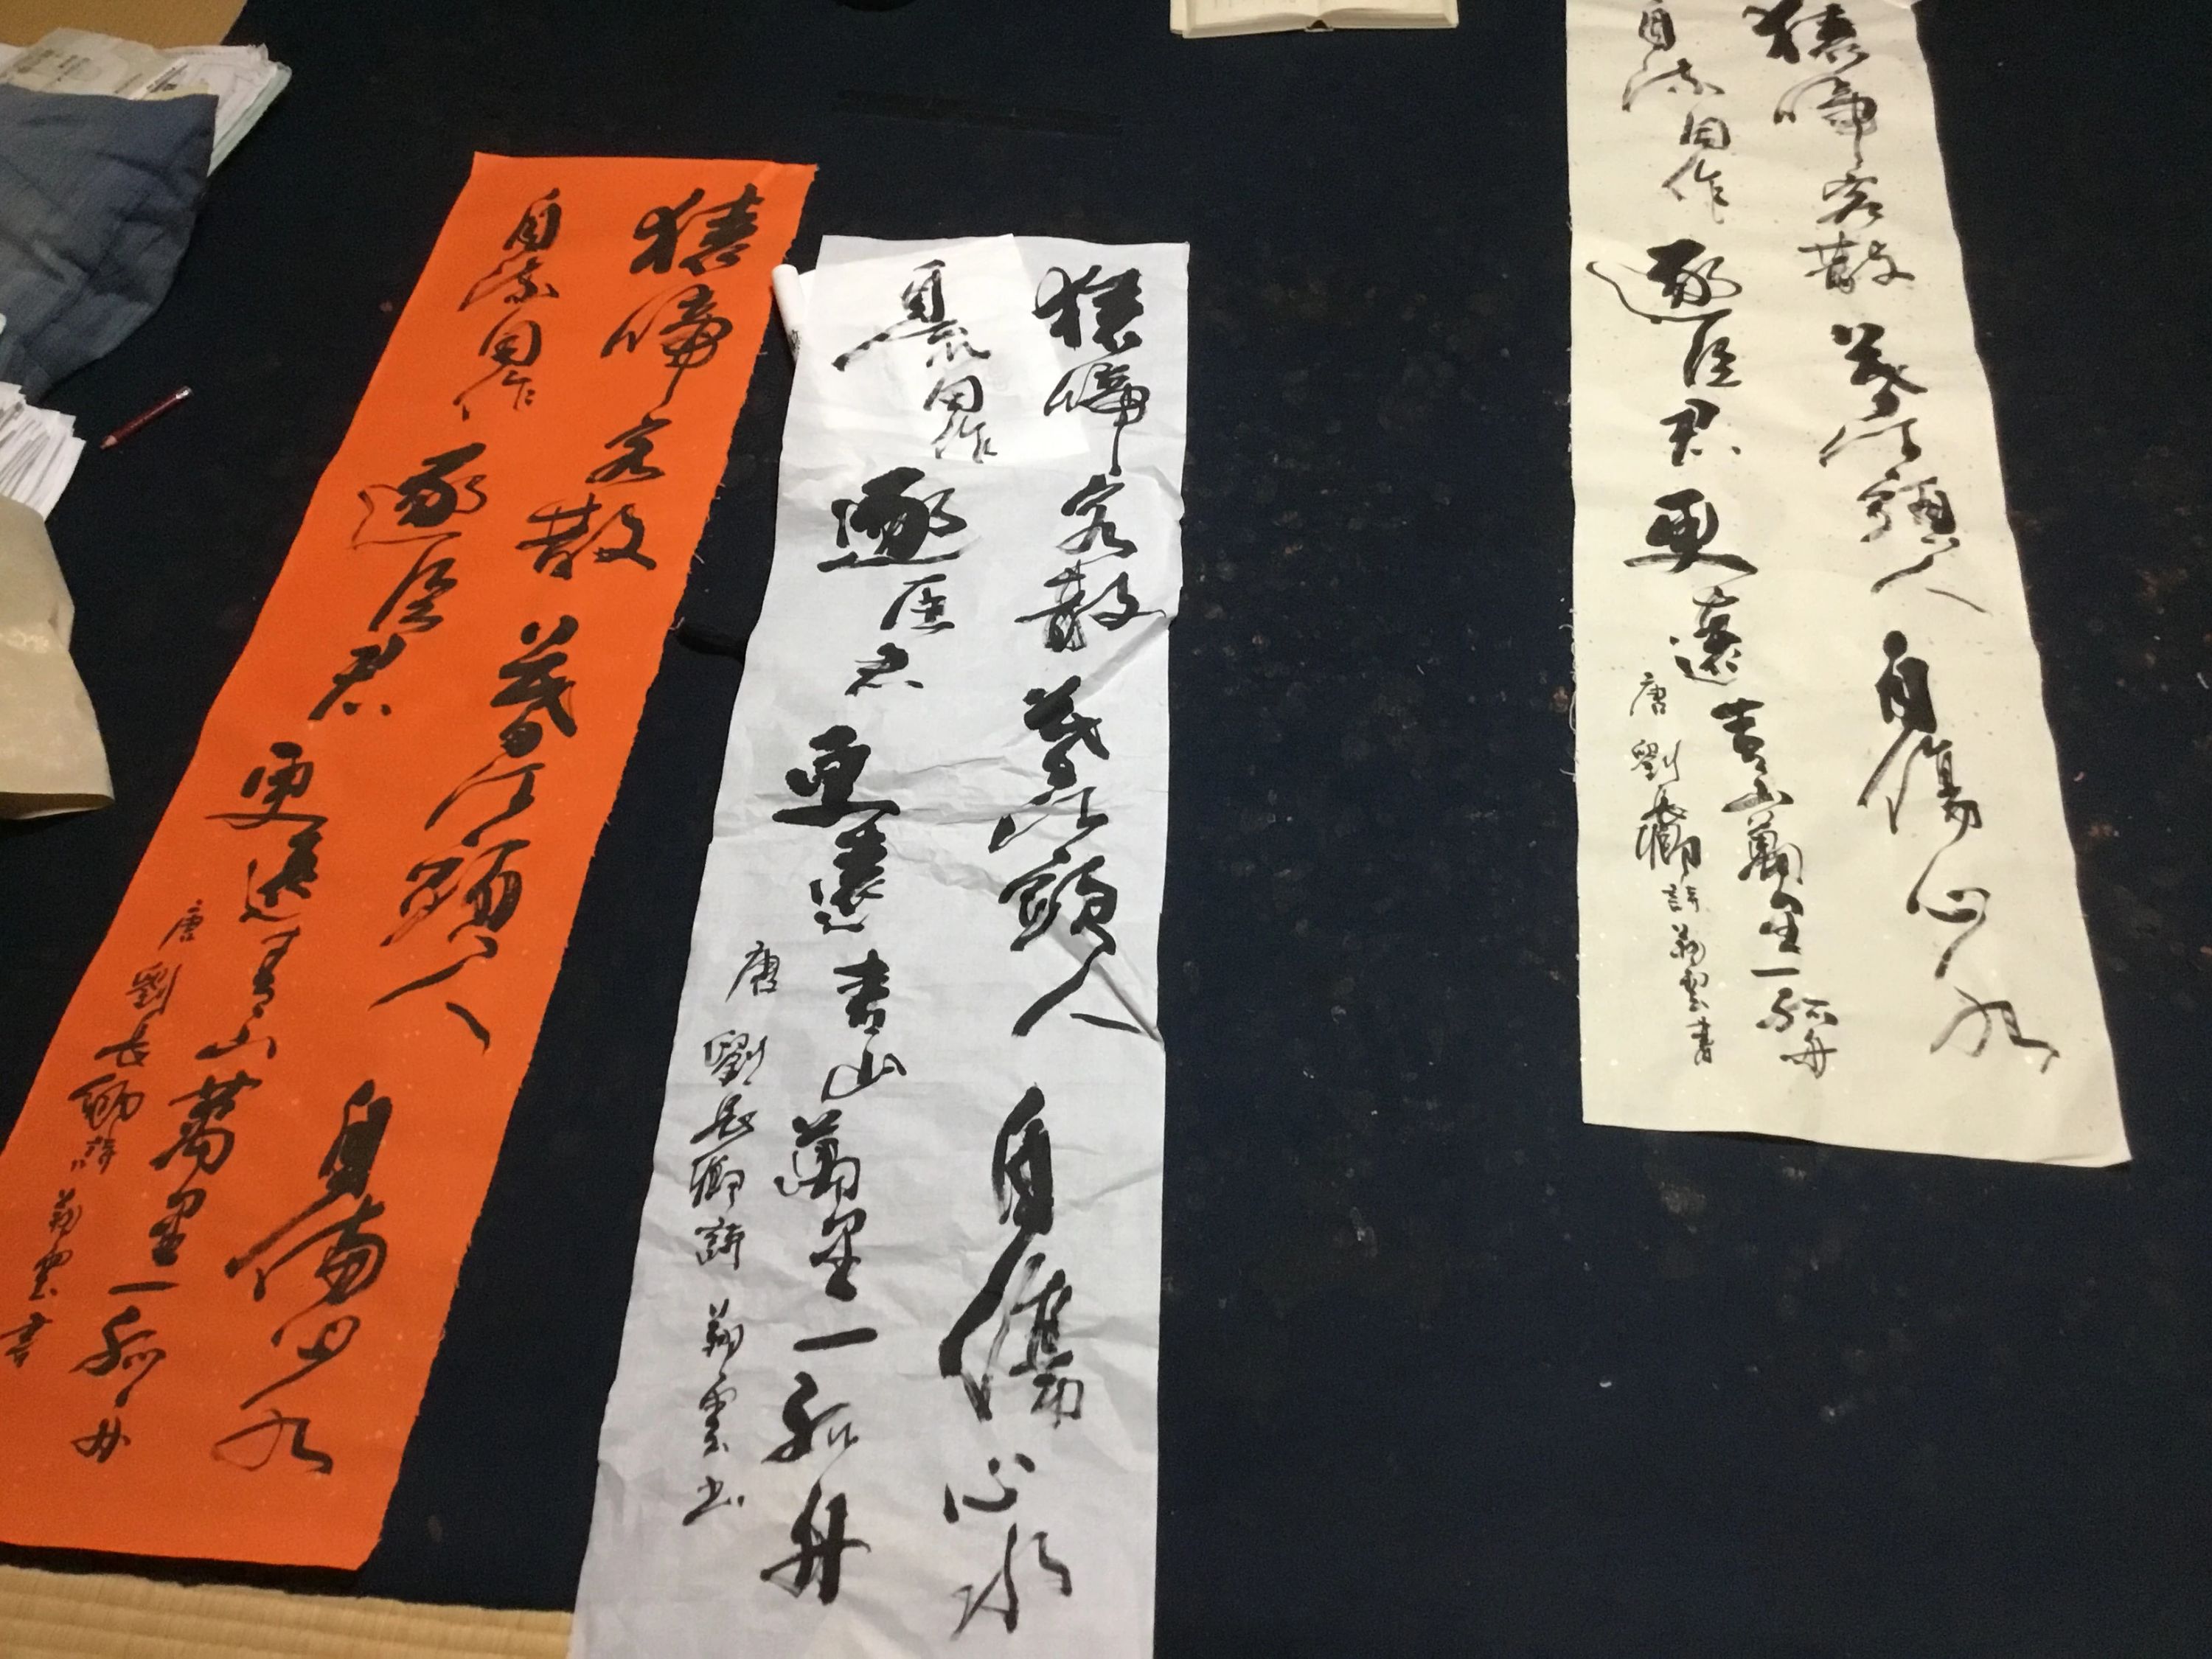 猿啼客散暮江頭人自傷心水
自流同作逐臣君更遠青山萬里一孤舟
唐劉長卿詩 雲書
猿啼客散暮江頭人自傷心水
自流同作逐臣君更遠青山萬里一孤舟
唐劉長卿詩 雲書
猿啼客散暮江頭人自傷心水
自流同作逐臣君更遠青山萬里一孤舟
唐劉長卿詩 雲書